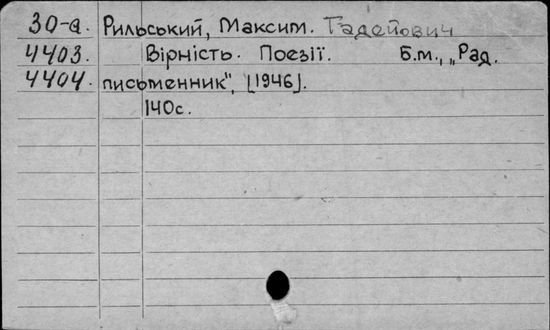 30-а. Рильський, Максим. Тадейович
4403. Вірність. Поезії. Б.м., „Рад.
4404. письменник", [1946].
140с.